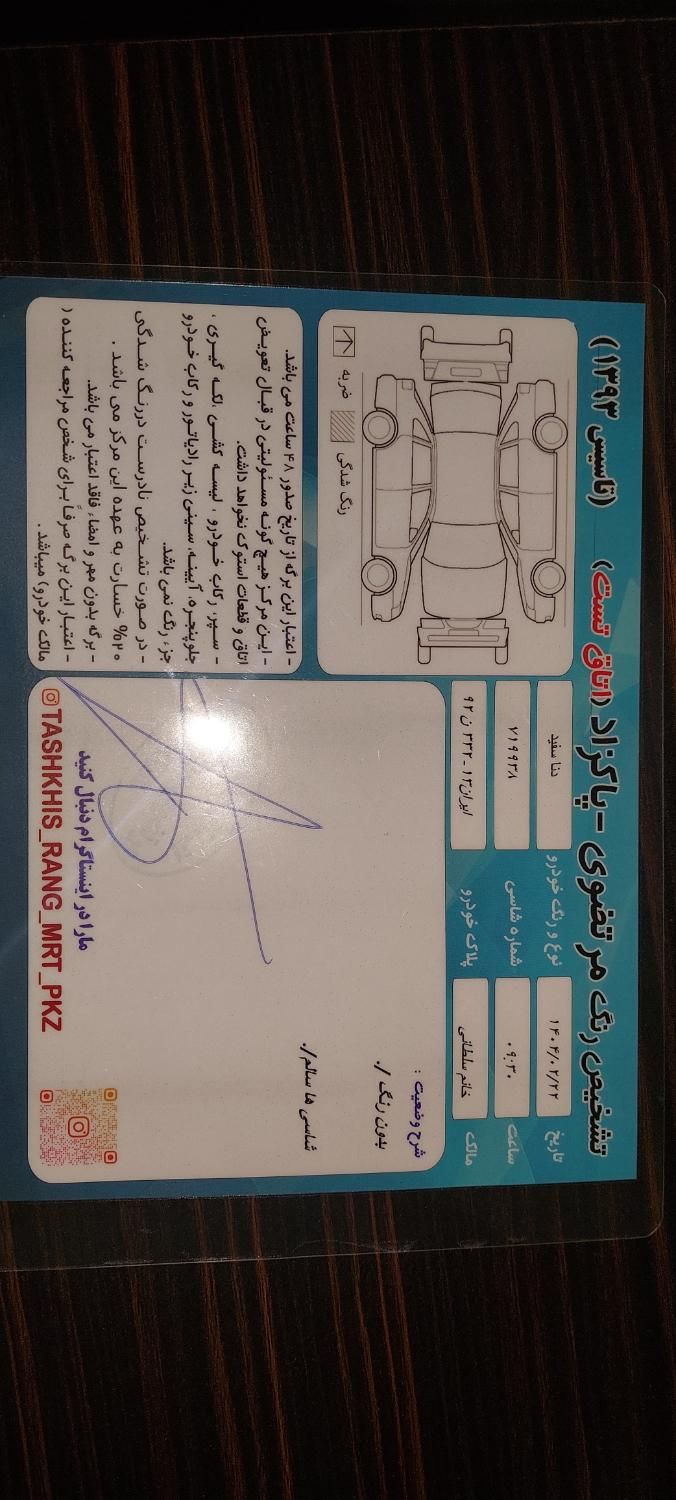 تشخیص رنگ مرتضوی - پاکزاد (اتاق تست) (تاسیس ۱۳۹۳)
تاریخ ۱۴۰۴/۰۲/۲۲
ساعت ۰۹:۳۰
مالک خانم سلطانی
نوع و رنگ خودرو دنا سفید
شماره شاسی ۷۱۹۹۳۸
پلاک خودرو ایران۱۳ - ۳۳۲ ن ۹۲
شرح وضعیت :
بدون رنگ /.
شاسی ها سالم /.
ضربه
رنگ شدگی
- اعتبار این برگه از تاریخ صدور ۴۸ ساعت می باشد.
- ایـن مرکـز هیـچ گونـه مسـئولیتی در قبـال تعویـض
اتاق و قطعات استوک نخواهد داشت.
- سـپر، رکاب خـودرو ، لیسـه کشـی ،لکـه گیـری ،
جلوپنجـره، آیینـه، سـینی زیـر رادیاتـور و رکاب خـودرو
جزء رنگ نمی باشد.
- در صـورت تشـخیص نادرسـت دررنـگ شـدگی
۲۰% خسارت به عهده این مرکز می باشد .
- برگه بدون مهر و امضاء فاقد اعتبار می باشد.
- اعتبـار ایـن بـرگـه صرفـاً بـرای شـخص مراجعـه کننـده (
مالک خودرو) میباشد.
مارا در اینستاگرام دنبال کنید
TASHKHIS_RANG_MRT_PKZ